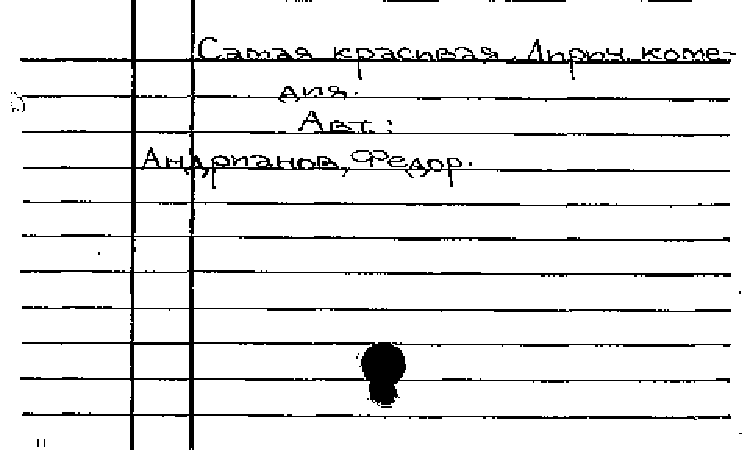 Самая красивая. Лирич. коме-
дия.
Авт.:
Андрианов, Федор.